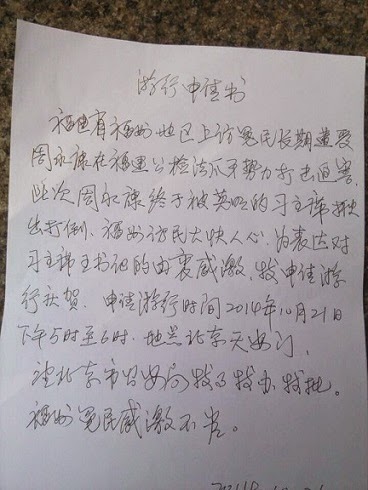 游行申请书
福建省福州地区上访冤民长期遭受
周永康在福建公检法爪牙势力打击迫害,
此次周永康终于被英明的习主席揪
出打倒、福州访民大快人心、为表达对
习主席王书记的由衷感激、特申请游
行庆贺、申请游行时间2014年10月21日
下午5时至6时、地点北京天安门、
请北京市公安局特事特办特批。
福州冤民感激不尽。